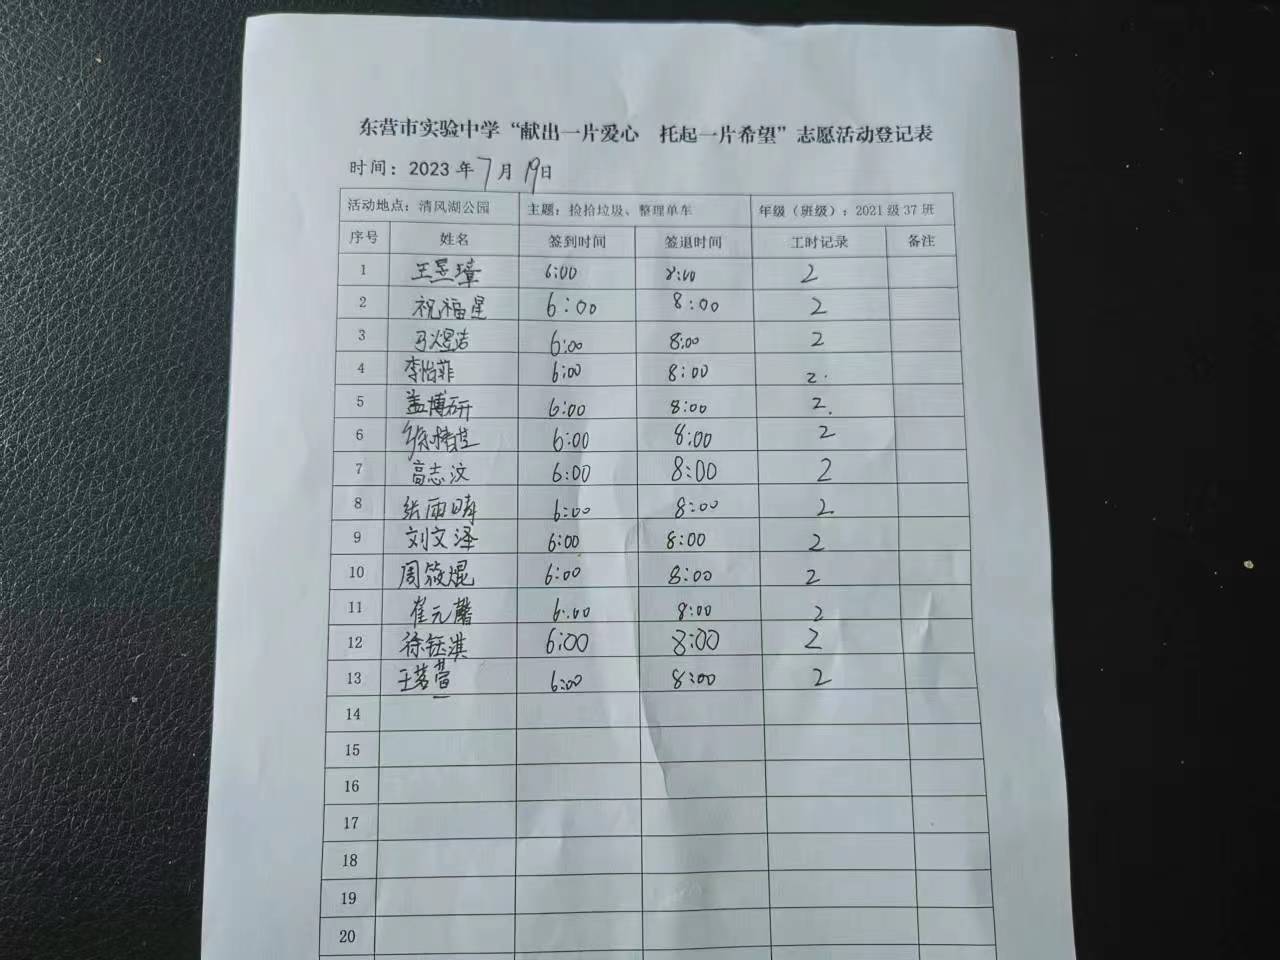 东营市实验中学“献出一片爱心 托起一片希望”志愿活动登记表
时间：2023 年 7 月 19 日
活动地点：清风湖公园 主题：捡拾垃圾、整理单车 年级（班级）：2021 级 37 班
序号 姓名 签到时间 签退时间 工时记录 备注
1 王昱璋 6:00 8:00 2
2 祝福星 6:00 8:00 2
3 6:00 8:00 2
4 李怡菲 6:00 8:00 2.
5 盖博研 6:00 8:00 2.
6 6:00 8:00 2
7 高志汶 6:00 8:00 2
8 张雨晴 6:00 8:00 2
9 刘文泽 6:00 8:00 2
10 周筱焜 6:00 8:00 2
11 崔元馨 6:00 8:00 2
12 徐钰淇 6:00 8:00 2
13 王茗萱 6:00 8:00 2
14
15
16
17
18
19
20